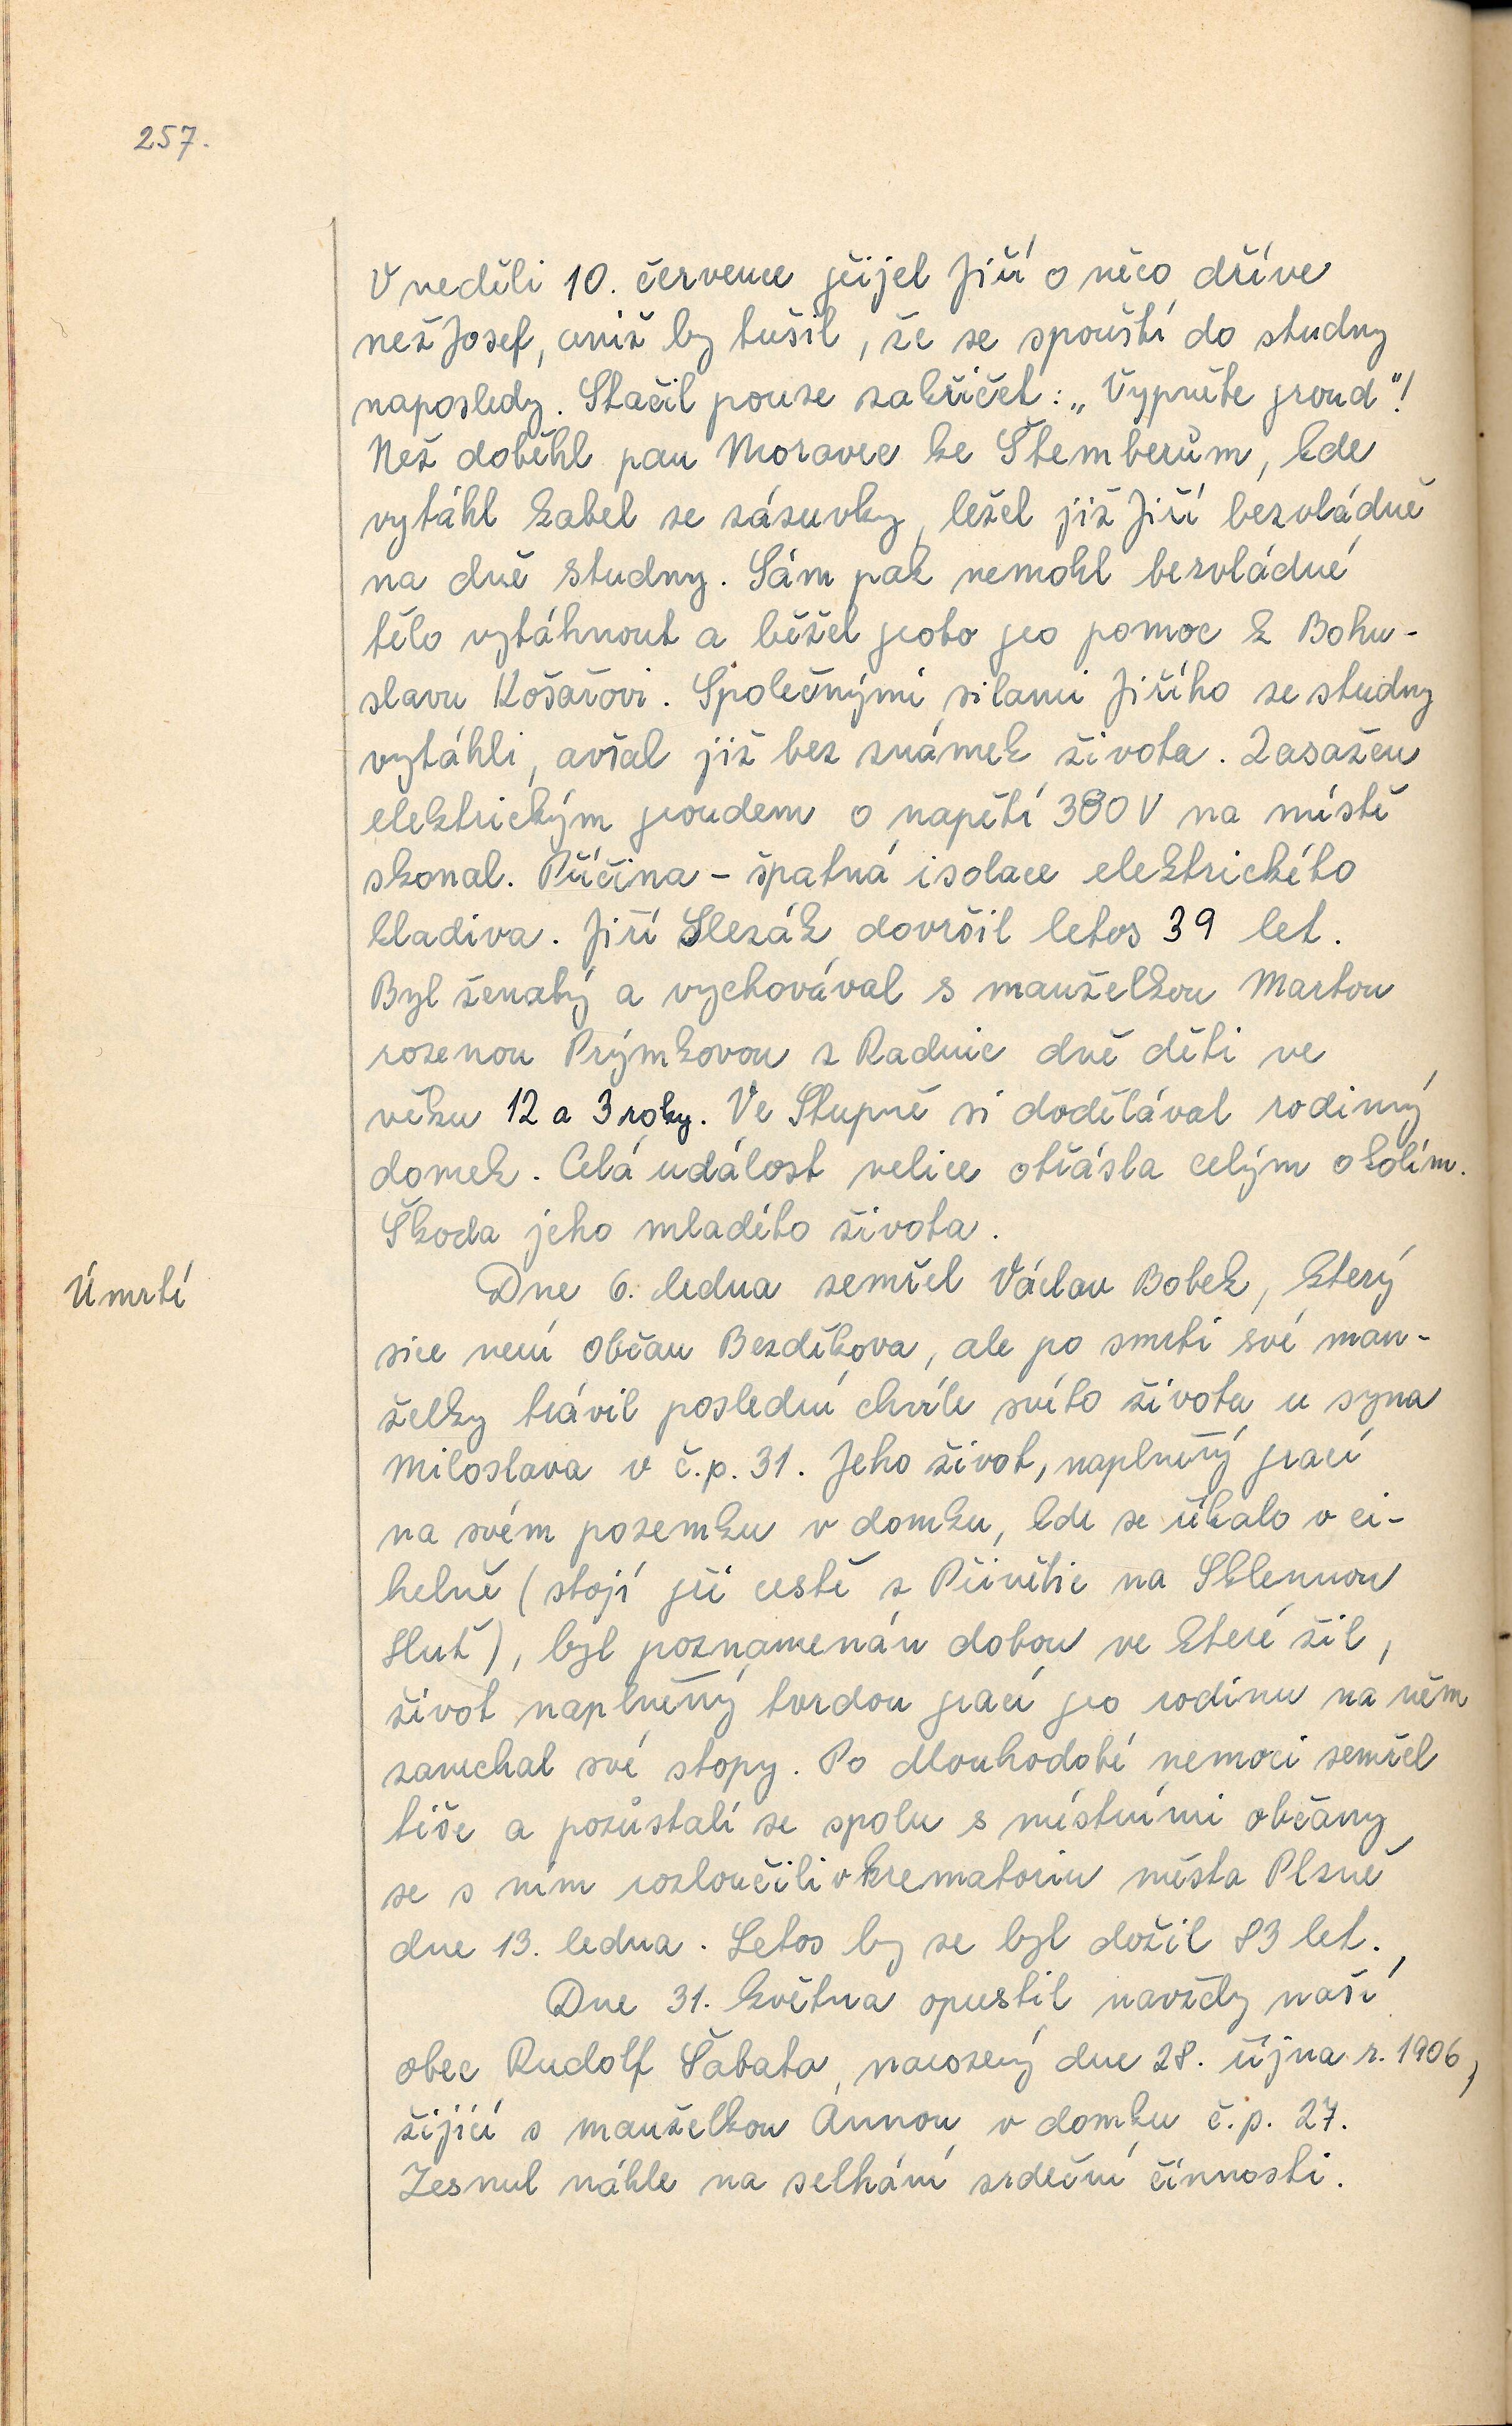 257.
V neděli 10. července přijel Jiří o něco dříve
než Josef, aniž by tušil, že se spouští do studny
naposledy. Stačil pouze zakřičet: „Vypněte proud"!
Než doběhl pan Moravec ke Štemberům, kde
vytáhl kabel ze zásuvky, ležel již Jiří bezvládně
na dně studny. Sám pak nemohl bezvládné
tělo vytáhnout a běžel proto pro pomoc k Bohu-
slavu Košařovi. Společnými silami Jiřího ze studny
vytáhli, avšak již bez známek života. Zasažen
elektrickým proudem o napětí 380 V na místě
skonal. Příčina - špatná isolace elektrického
kladiva. Jiří Slezák dovršil letos 39 let.
Byl ženatý a vychovával s manželkou Martou
rozenou Prýmkovou z Radnic dvě děti ve
věku 12 a 3 roky. Ve Stupně si dodělával rodinný
domek. Celá událost velice otřásla celým okolím.
Škoda jeho mladého života.
Úmrtí
Dne 6. ledna zemřel Václav Bobek, který
sice není občan Bezděkova, ale po smrti své man-
želky trávil poslední chvíle svého života u syna
Miloslava v č.p. 31. Jeho život, naplněný prací
na svém pozemku v domku, kde se říkalo v ci-
helně (stojí při cestě z Přivětic na Sklennou
Huť), byl poznamenán dobou ve které žil,
život naplněný tvrdou prací pro rodinu na něm
zanechal své stopy. Po dlouhodobé nemoci zemřel
tiše a pozůstalí se spolu s místními občany
se s ním rozloučili v krematoriu města Plzně
dne 13. ledna. Letos by se byl dožil 83 let.
Dne 31. května opustil navždy naší
obec Rudolf Šabata, narozený dne 28. října r. 1906,
žijící s manželkou Annou v domku č.p. 27.
Zesnul náhle na selhání srdeční činnosti.